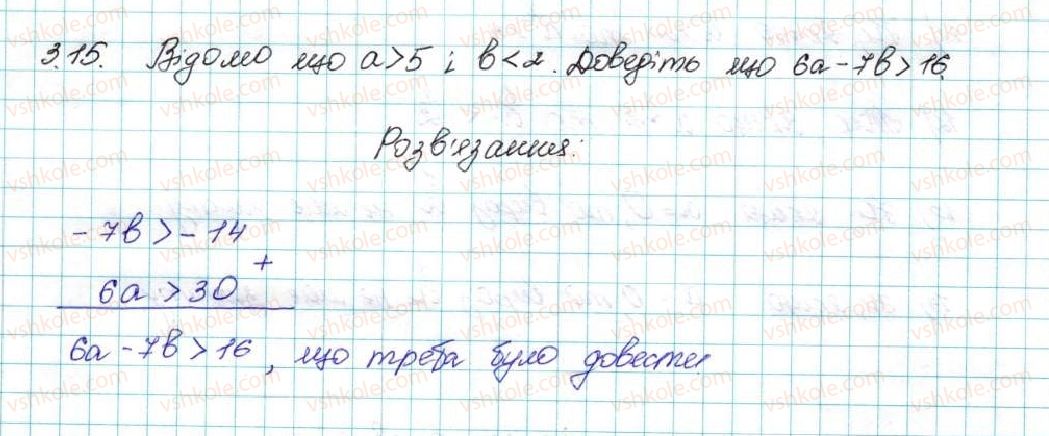 3.15. Відомо що a>5 і b<2. Доведіть що 6a-7b>16.
Розв'язання:
-7b>-14
+
6a>30
6a-7b>16, що треба було довести